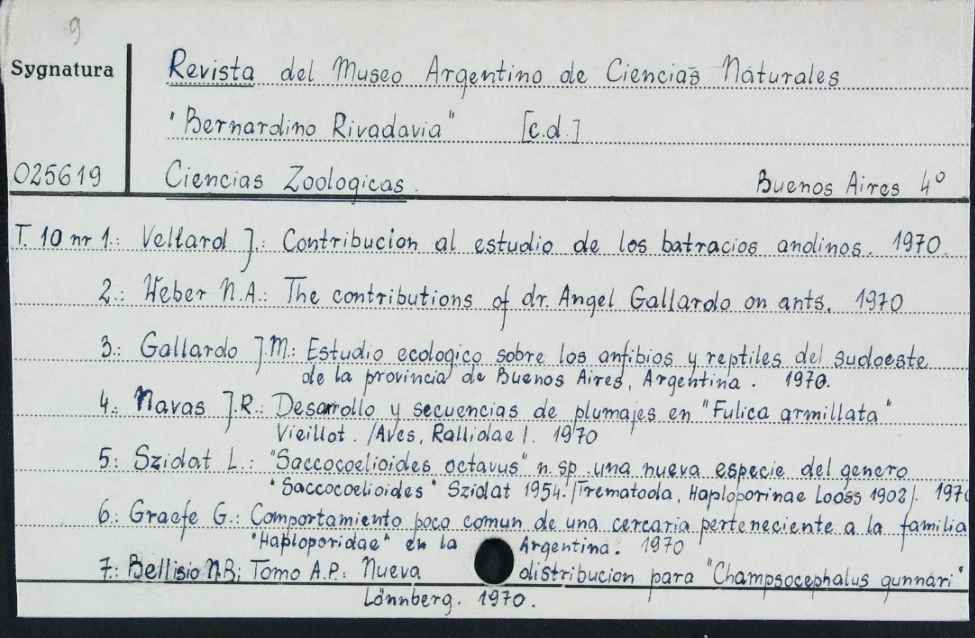 9
Sygnatura
Revista del Museo Argentino de Ciencias Naturales
"Bernardino Rivadavia" [c.d.]
025619
Ciencias Zoologicas.
Buenos Aires 4º
T. 10 nr 1.: Vellard J.: Contribucion al estudio de los batracios andinos. 1970.
2.: Weber N.A.: The contributions of dr. Angel Gallardo on ants. 1970
3.: Gallardo J.M.: Estudio ecologico sobre los anfibios y reptiles del sudoeste
de la provincia de Buenos Aires, Argentina. 1970.
4.: Navas J.R.: Desarrollo y secuencias de plumajes en "Fulica armillata"
Vieillot. /Aves, Rallidae/. 1970
5.: Szidat L.: "Saccocoelioides octavus" n.sp. una nueva especie del genero
"Saccocoelioides" Szidat 1954. /Trematoda, Haploporinae Looss 1902/. 1970
6.: Graefe G.: Comportamiento poco comun de una cercaria perteneciente a la familia
"Haploporidae" en la Argentina. 1970
7.: Bellisio N.B; Tomo A.P.: Nueva distribucion para "Champsocephalus gunnari"
Lönnberg. 1970.